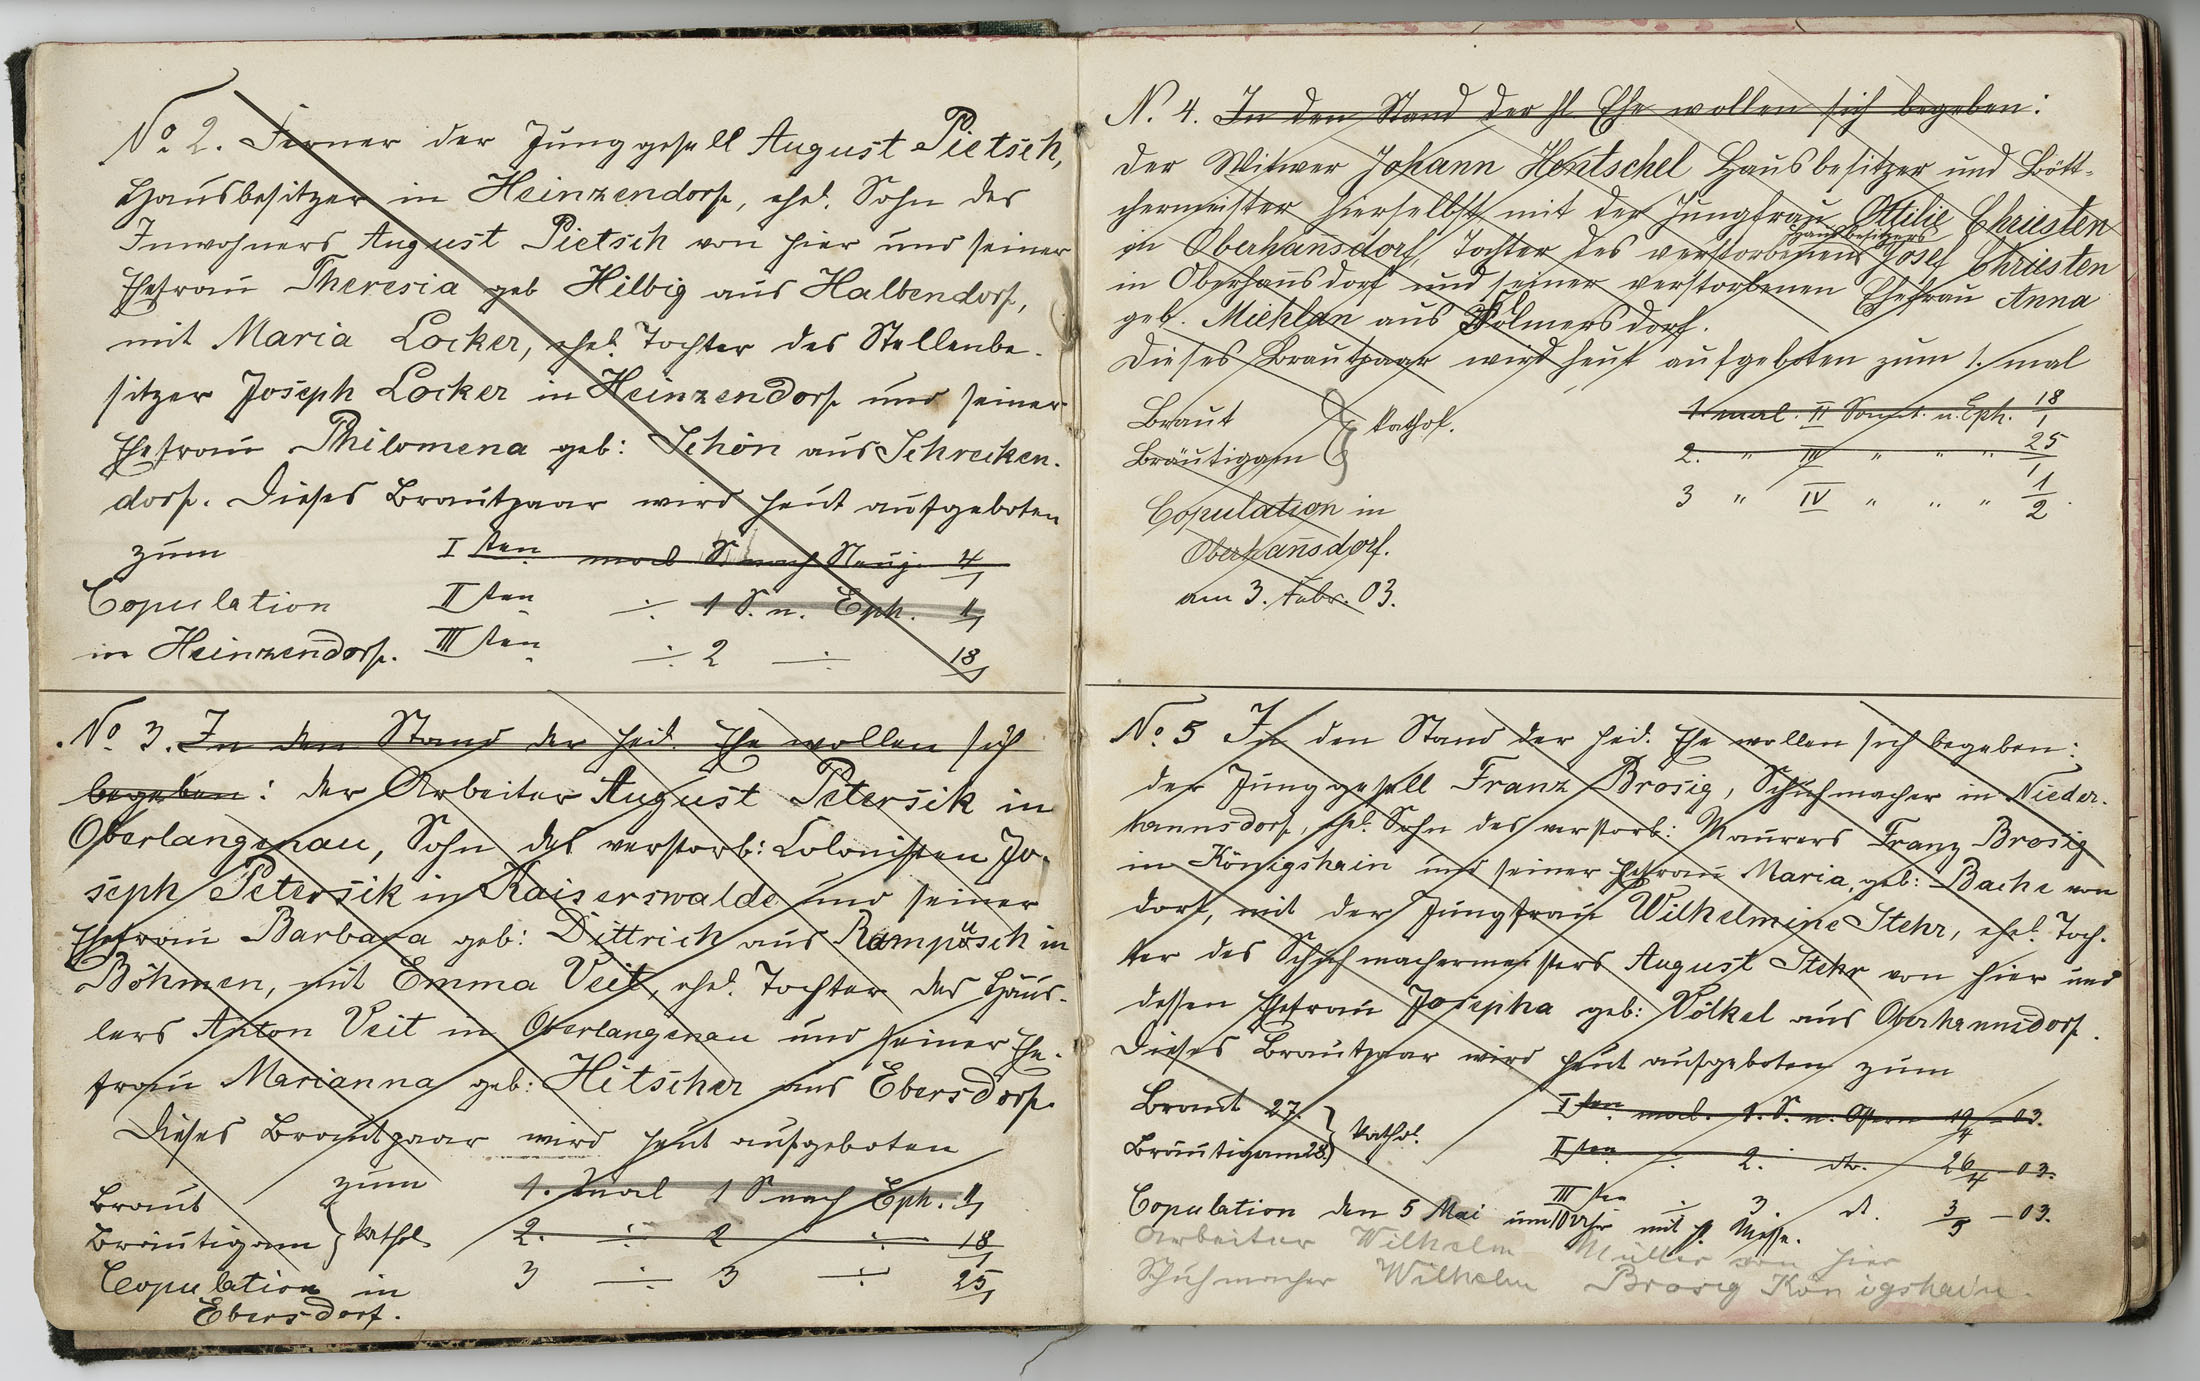 No 2. Ferner der Junggesell August Pietsch,
Hausbesitzer in Heinzendorf, ehel. Sohn des
Inwohners August Pietsch von hier und seiner
Ehefrau Theresia geb Hilbig aus Halbendorf,
mit Maria Locker, ehel. Tochter des Stellenbe-
sitzer Joseph Locker in Heinzendorf und seiner
Ehefrau Philomena geb: Schön aus Schrecken-
dorf. Dieses Brautpaar wird heut aufgeboten
zum I ten mal S. nach Neuj. 4/1
Copulation II ten ÷ 1 S. n. Eph. 11/1
in Heinzendorf. III ten ÷ 2 ÷ 18/1
No 3. In den Stand der heil. Ehe wollen sich
begeben: der Arbeiter August Petersik in
Oberlangenau, Sohn des verstorb: Colonisten Jo-
seph Petersik in Kaiserswalde und seiner
Ehefrau Barbara geb: Dittrich aus Rampüsch in
Böhmen, mit Emma Veit, ehel. Tochter des Häus-
lers Anton Veit in Oberlangenau und seiner Ehe-
frau Marianna geb: Hitscher aus Ebersdorf.
Dieses Brautpaar wird heut aufgeboten
zum 1. mal 1 S nach Eph. 11/1
Braut
Bräutigam } kathol. 2. ÷ 2 ÷ 18/1
Copulation in 3 ÷ 3 ÷ 25/1
Ebersdorf.
N. 4. In den Stand der hl Ehe wollen sich begeben:
der Witwer Johann Hentschel Hausbesitzer und Bött-
chermeister hierselbst mit der Jungfrau Ottilie Christen
in Oberhansdorf, Tochter des verstorbenen Hausbesitzers Josef Christen
in Oberhansdorf und seiner verstorbenen Ehefrau Anna
geb. Michlan aus Volmersdorf.
Dieses Brautpaar wird heut aufgeboten zum 1. mal
Braut } kathol. 1. mal. II Sonnt. n. Eph. 18/1
Bräutigam 2. " III " " " 25/1
3 " IV " " " 1/2
Copulation in
Oberhansdorf.
am 3. Febr. 03.
No. 5 In den Stand der heil. Ehe wollen sich begeben:
der Junggesell Franz Brosig, Schuhmacher in Nieder-
hannsdorf, ehel. Sohn des verstorb: Maurers Franz Brosig
in Königshain und seiner Ehefrau Maria, geb: Bache von
dort, mit der Jungfrau Wilhelmine Stehr, ehel. Toch-
ter des Schuhmachermeisters August Stehr von hier und
dessen Ehefrau Josepha geb: Völkel aus Oberhannsdorf.
Dieses Brautpaar wird heut aufgeboten zum
Braut 27. } kathol. I ten mal. 1. S. n. Ostern 19/4 – 03.
Bräutigam 28. II ten ÷ 2. do. 26/4 – 03.
III ten ÷ 3. do. 3/5 – 03.
Copulation den 5 Mai um 10 Uhr mit hl. Messe.
Arbeiter Wilhelm Müller von hier
Schuhmacher Wilhelm Brosig Königshain.